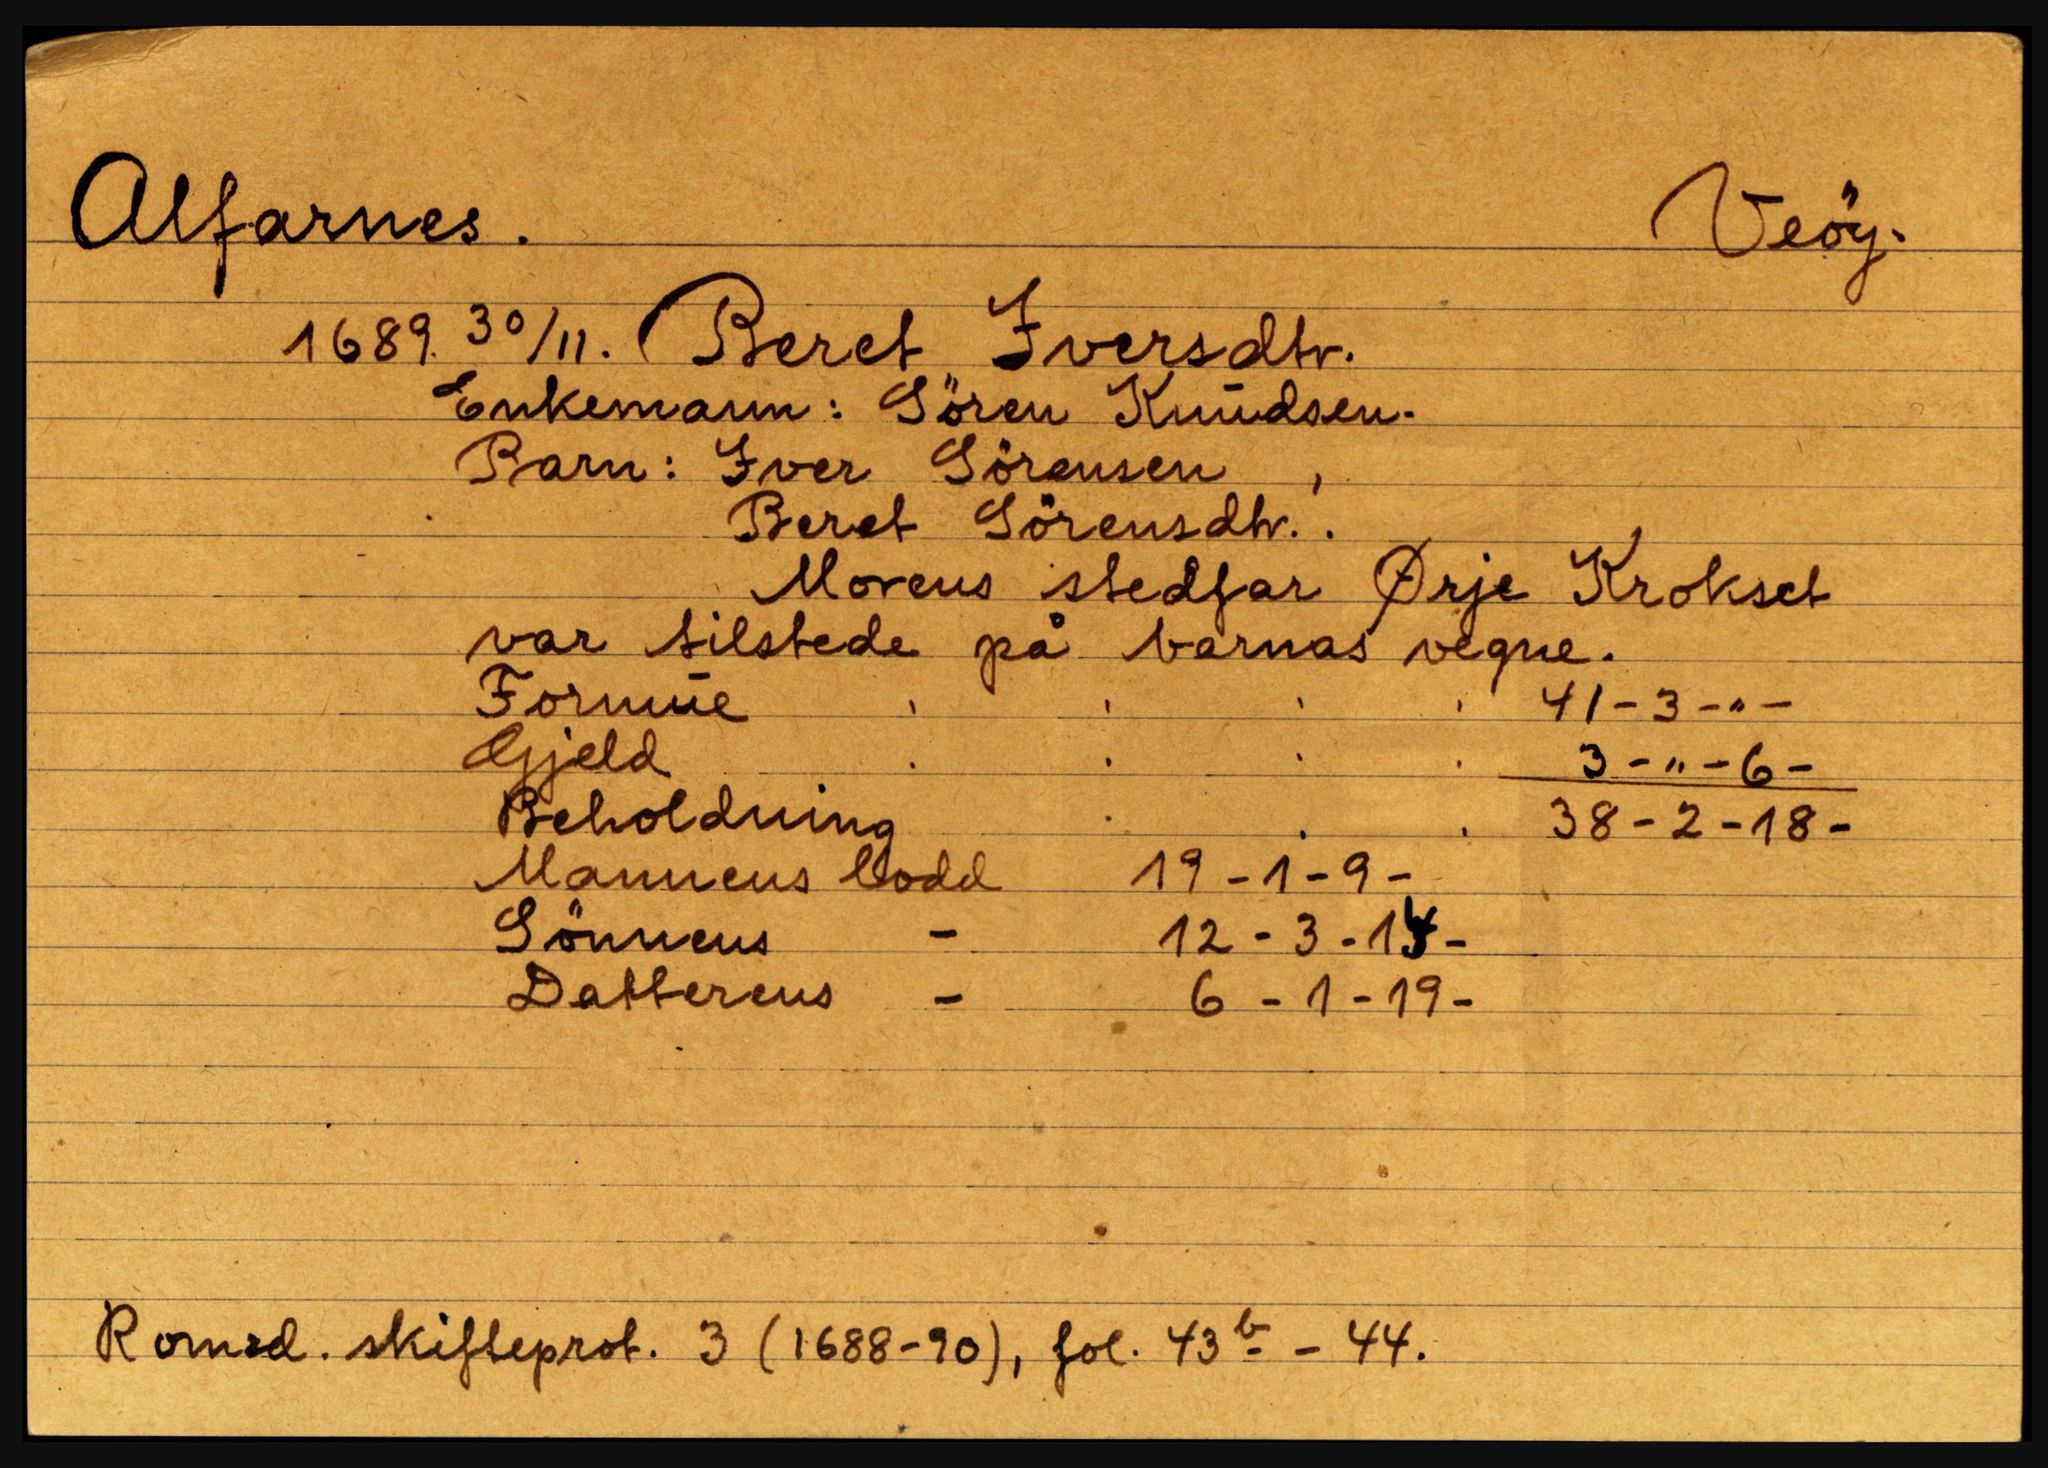 Alfarnes. Veöy.
1689. 30/11. Beret Iversdtr.
Enkemann: Sören Knudsen.
Barn: Iver Sörensen,
Beret Sörensdtr..
Morens stedfar Ørje Krokset
var tilstede på barnas vegne.
Formue . . . . 41-3-"-
Gjeld . . . . 3-"-6-
Beholdning . . . 38-2-18-
Mannens lodd 19-1-9-
Sönnens - 12-3-14-
Dattereus - 6-1-19-
Romsd. skifteprot. 3 (1688-90), fol. 43b - 44.